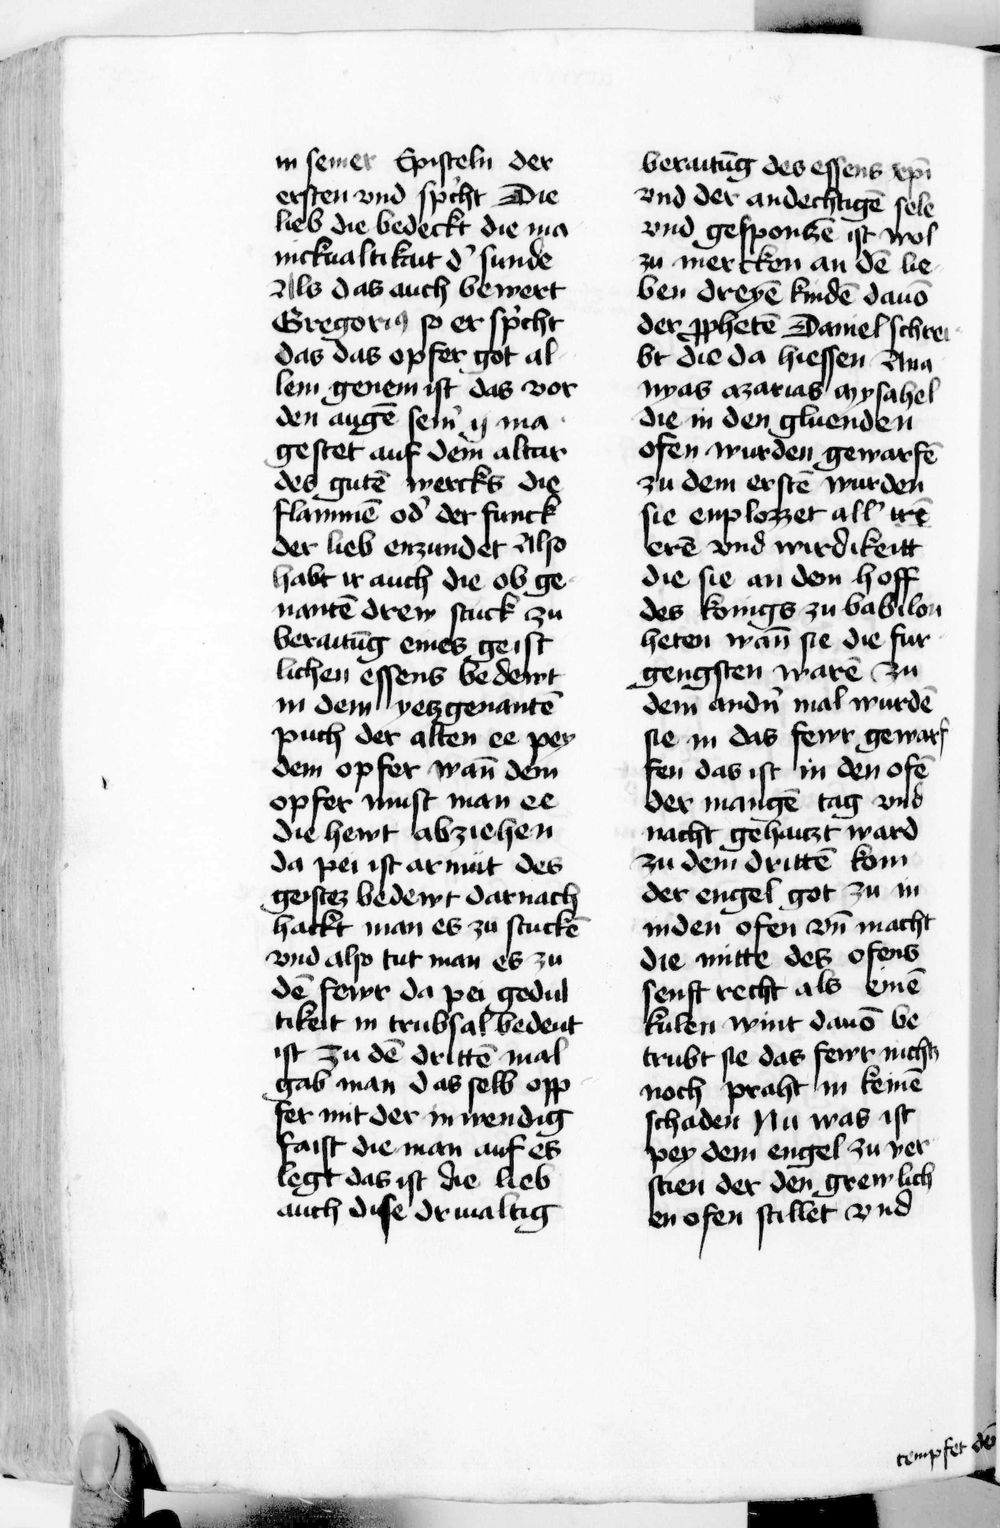 in seiner Episteln der
ersten vnd sp̾cht Die
lieb die bedeckt die ma
nickualtikait d̾ sunde
Als das auch bewert
Gregoriꝰ so er sp̾cht
das das opfer got al
lem genem ist das vor
den augē sein̾ ma
gestet auf dem altar
des gutē wercks die
flammē od̾ der funck
der lieb enzundet Also
habt ir auch die ob ge
nantē drew stuck zu
beraitūg eines geist
lichen essens bedewt
in dem yetzgenantē
puch der alten ee pey
dem opfer wan̄ dem
opfer must man ee
die hewt abziehen
da pei ist armut des
geistez bedewt darnach
hackt man es zu stuckē
vnd also tut man es zu
dē fewr da pei gedul
tikeit in trubsal bedeut
ist Zu dē drittē mal
gab man das selb opp
fer mit der inwendig
faist die man auf es
legt das ist die lieb
auch dise driualtig
beraitūg des essens xp̄i
vnd der andechtigē sele
vnd gesponsē ist wol
zu mercken an dē lie
ben dreyē kindē dauō
der ꝓphetē Daniel schrei
bt die da hiessen Ana
nyas azarias mysahel
die in den gluenden
ofen wurden gewarfē
zu dem erstē wurden
sie enplozzet all̾ irē
erē vnd wirdikeitt
die sie an dem hoff
des konigs zu babilon
heten wan̄ sie die fur
gengsten warē Zu
dem and̾n mal wurdē
sie in das fewr gewarf
fen das ist in den ofē
der mangē tag vnd
nacht gehaitzt ward
zu dem drittē kom
der engel got zu in
inden ofen vn̄ macht
die mitte des ofens
senft recht als einē
kulen wint dauō be
trubt sie das fewr nichtz
noch praht in keinē
schaden Nu was ist
pey dem engel zu ver
stien der den grewlich
en ofen stillet vnd
tempfet dē